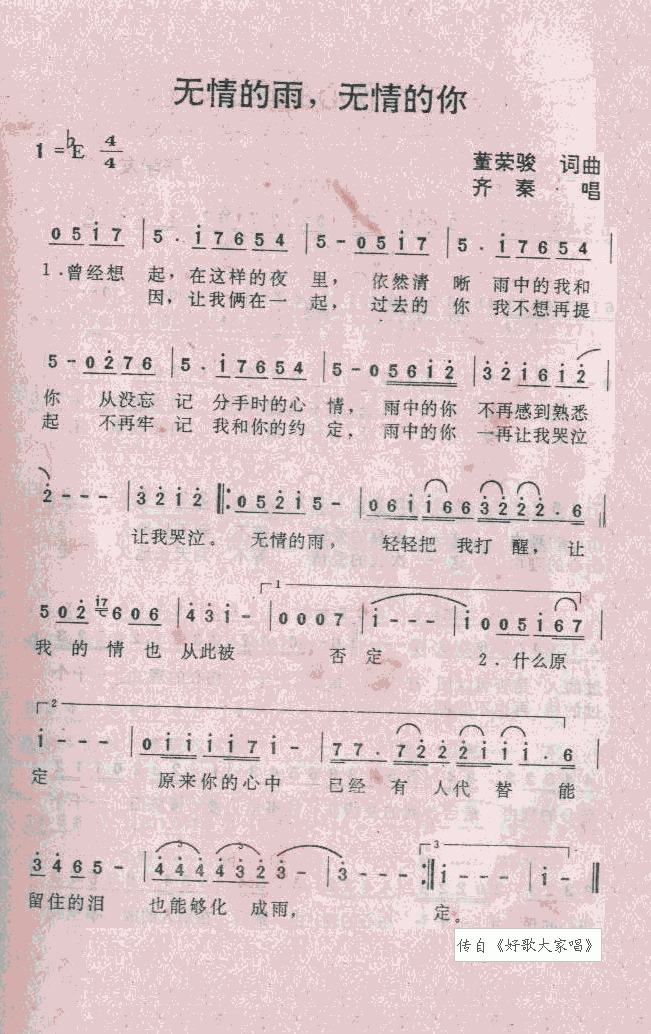 无情的雨，无情的你
1=♭E 4/4
董荣骏 词曲
齐秦 唱
0 5 i 7 | 5 · i 7 6 5 4 | 5 - 0 5 i 7 | 5 · i 7 6 5 4 |
1.曾经想 起，在这样的夜 里， 依然清 晰 雨中的我和
因，让我俩在一 起，过去的 你 我不想再提
5 - 0 2̇ 7 6 | 5 · i 7 6 5 4 | 5 - 0 5 6 i 2̇ | 3̇ 2̇ i 6 i 2̇ |
你 从没忘 记 分手时的心 情， 雨中的你 不再感到熟悉
起 不再牢 记 我和你的约 定，雨中的你 一再让我哭泣
2̇ - - - | 3̇ 2̇ i 2̇ ‖: 0 5 2̇ i 5 - | 0 6 i i 6 6 3̇ 2̇ 2̇ 2̇ · 6 ‖
让我哭泣。 无情的雨， 轻轻把 我打 醒，让
┌1
5 0 2̇ i7 6 0 6 | 4̇ 3̇ i - | 0 0 0 7 | i - - - | i 0 0 5 i 6 7 |
我 的 情 也 从此被 否 定 2.什么原
┌2
i - - - | 0 i i i i 7 i - | 7 7 · 7 2̇ 2̇ 2̇ i i i · 6 |
定 原来你的心中 已经 有 人代 替 能
┌3
3̇ 4̇ 6 5 - | 4̇ 4̇ 4̇ 4̇ 3̇ 2̇ 3̇ - | 3̇ - - - :‖ i - - - | i - ‖
留住的泪 也能够化 成雨， 定。
传自《好歌大家唱》